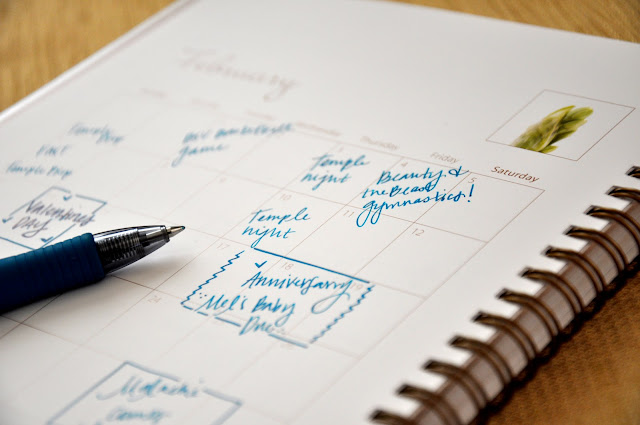 February
Wednesday
Thursday
Friday
Saturday
3
4
5
FAST
Temple Prep
Basketball
game
Temple
night
Beauty &
the Beast
gymnastics!
Valentine's
Day
10
11
12
Temple
night
17
18
19
Anniversary
Mel's Baby
Due
24
Malachi